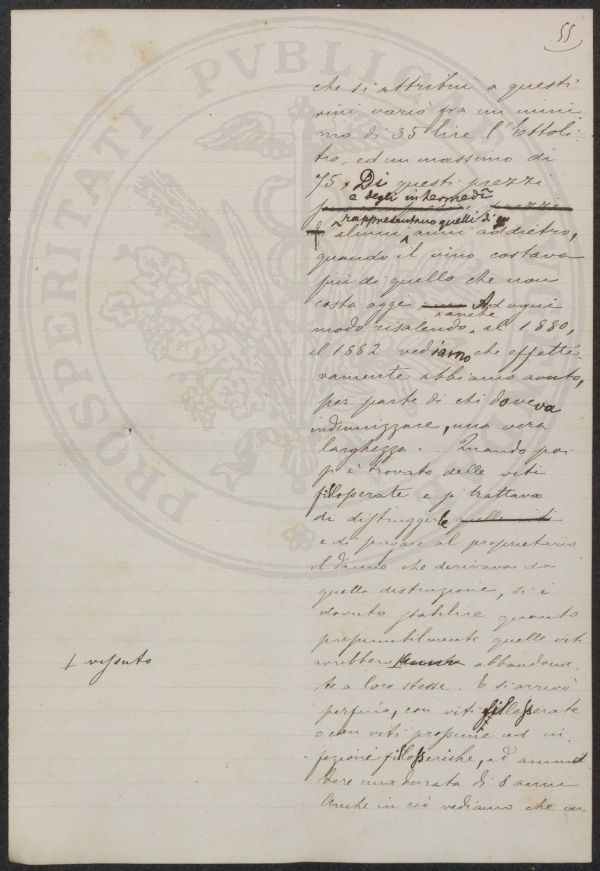 55
PROSPERITATI PUBLICAE
che si attribuì a questi
vini variò fra un mini
mo di 35 lire l'Ettoli
tro, ed un massimo di
75. Di questi prezzi
e degli intermedî
prezzi
rappresentano quelli di
alcuni anni addietro,
quando il vino costava
più di quello che non
costa oggi. Ad ogni
anche
modo risalendo al 1880,
il 1882 vediamo che effetti
vamente abbiamo avuto,
per parte di chi doveva
indennizzare, una vera
larghezza. Quando poi
si è trovato delle viti
fillosserate e si trattava
di distruggerle quelle viti
e di pagare al proprietario
il danno che derivava da
quella distruzione, si è
dovuto stabilire quanto
presumibilmente quelle viti
+ vissuto
avrebbero abbandona
te a loro stesse. E si arrivò
perfino, con viti fillosserate
o con viti prossime ad in
fezioni fillosseriche, ad ammet
tere una durata di 8 anni
Anche in ciò vediamo che un